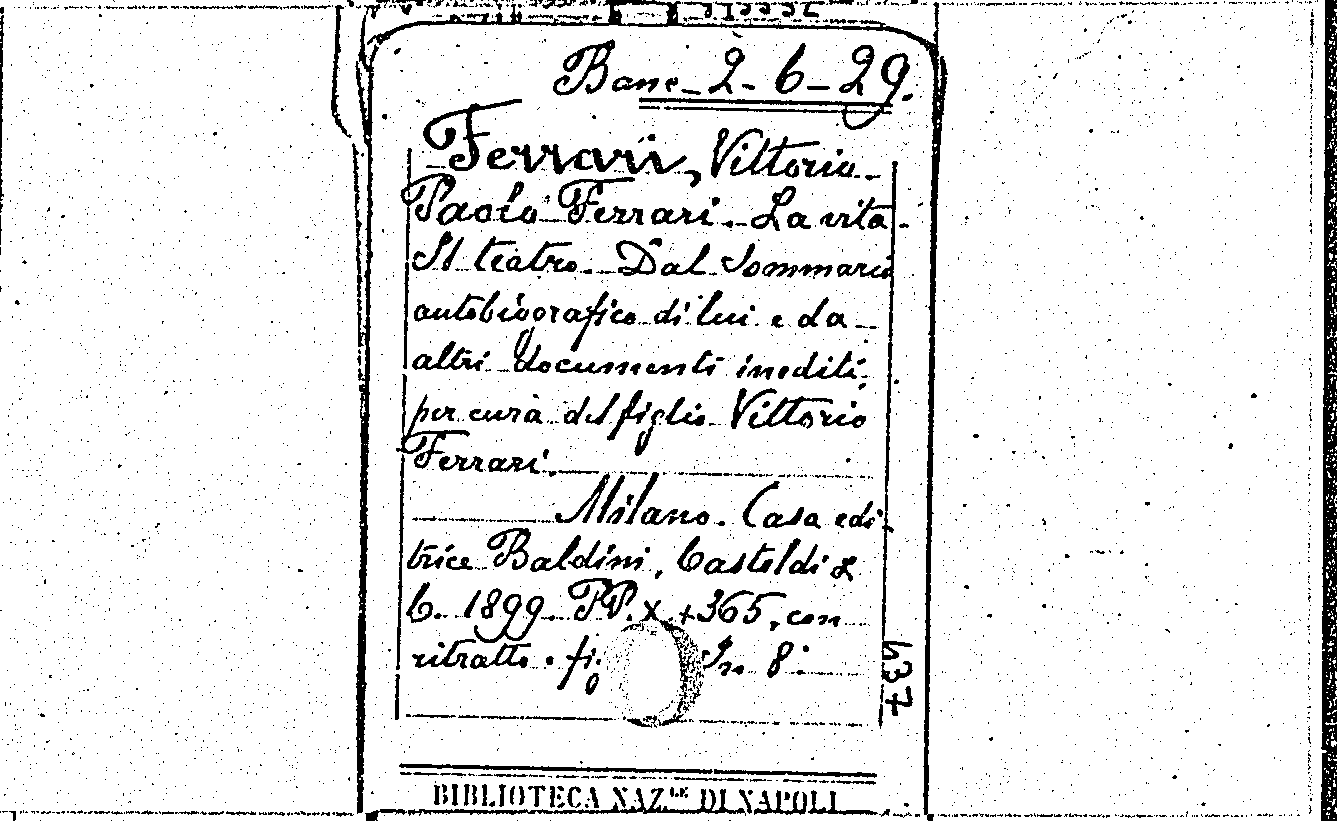 Banc-2-6-29.
Ferrari, Vittorio.
Paolo Ferrari. La vita.
Il teatro. Dal Sommario
autobiografico di lui e da
altri documenti inediti,
per cura del figlio Vittorio
Ferrari.
Milano. Casa edi-
trice Baldini, Casteldi &
C. 1899. PP. X +365, con
ritratto. fi In 8°
437
BIBLIOTECA NAZ.LE DI NAPOLI